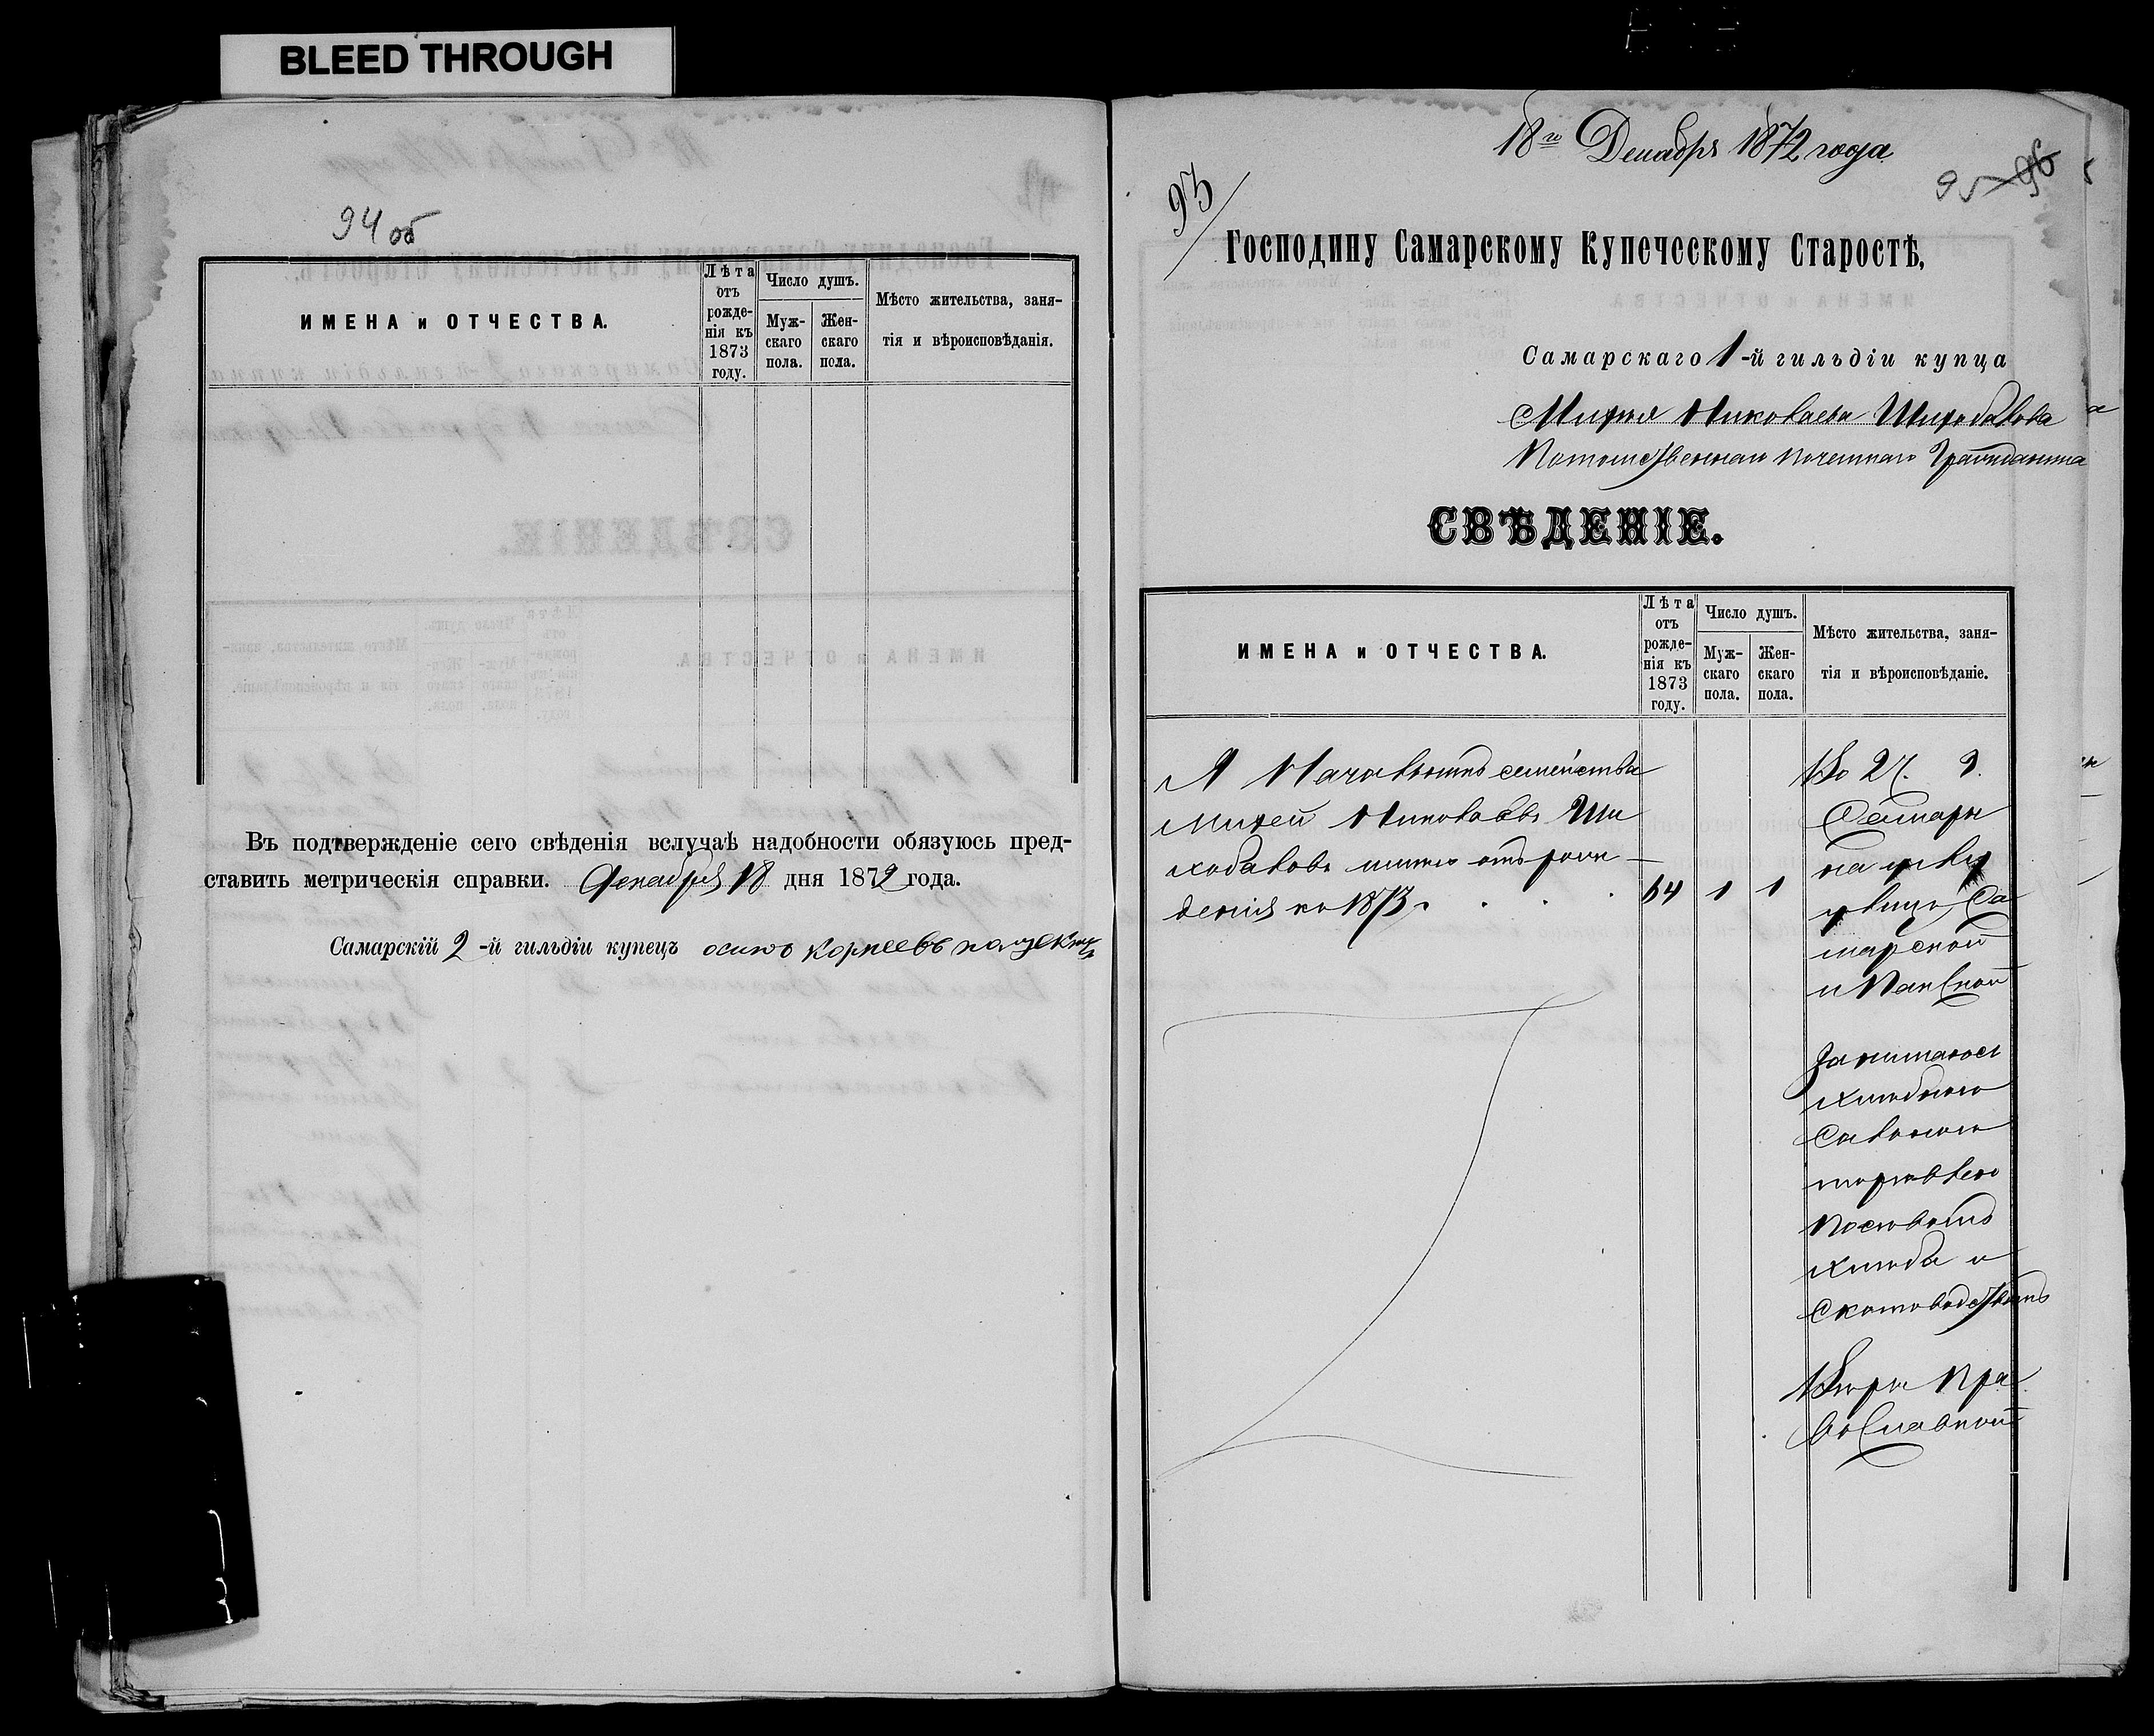 BLEED THROUGH
94 об
ИМЕНА и ОТЧЕСТВА.
Лѣта отъ рожденія къ 1873 году.
Число душъ.
Мужскаго пола.
Женскаго пола.
Мѣсто жительства, заня-
тія и вѣроисповѣданія.
Въ подтвержденіе сего свѣденія вслучаѣ надобности обязуюсь пред-
ставить метрическія справки. Декабря 18 дня 1872 года.
Самарскій 2-й гильдіи купецъ осипъ корнеевъ
18го Декабря 1872 года
93
95 96
Господину Самарскому Купеческому Старостѣ,
Самарскаго 1-й гильдіи купца
Михея Николаева Шихобалова
Потомственнаго почетнаго Гражданина
СВѢДЕНІЕ.
ИМЕНА и ОТЧЕСТВА.
Лѣта
отъ
рожде-
нія къ
1873
году.
Число душъ.
Муж-
скаго
пола.
Жен-
скаго
пола.
Мѣсто жительства, заня-
тія и вѣроисповѣданіе.
Я Начальникъ семейства
Михей Николаевъ Ши
хобаловъ отъ рож
денія къ 1873 64 1 1
Во 2 ч. г.
Самары
на углу
улицъ Са
марской
и Панской
Занимаюсь
хлебною
торговлею
Посевомъ
хлеба и
Скотоводствомъ
Веры Пра
вославной